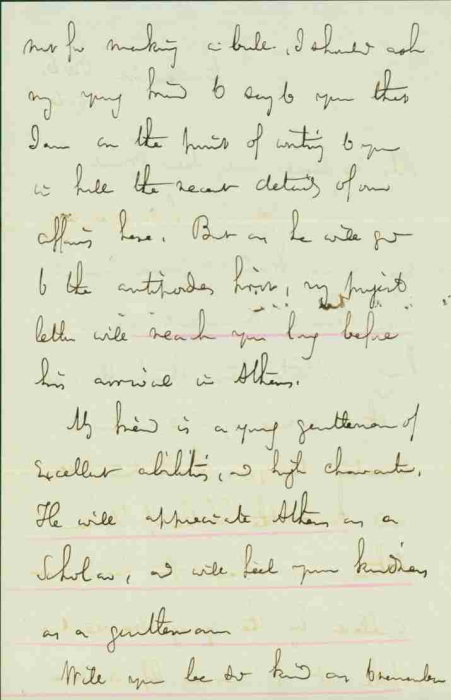 not for making a bull, I should ask
my young friend to say to you that
I am on the point of writing to you
in full the recent details of our
affairs here. But as he will go
to the antipodes first, my project
letter will reach you long before
his arrival in Athens.
My friend is a young gentleman of
excellent abilities, and high character.
He will appreciate Athens as a
Scholar, and will feel your kindness
as a gentleman
Will you be so kind as to remember